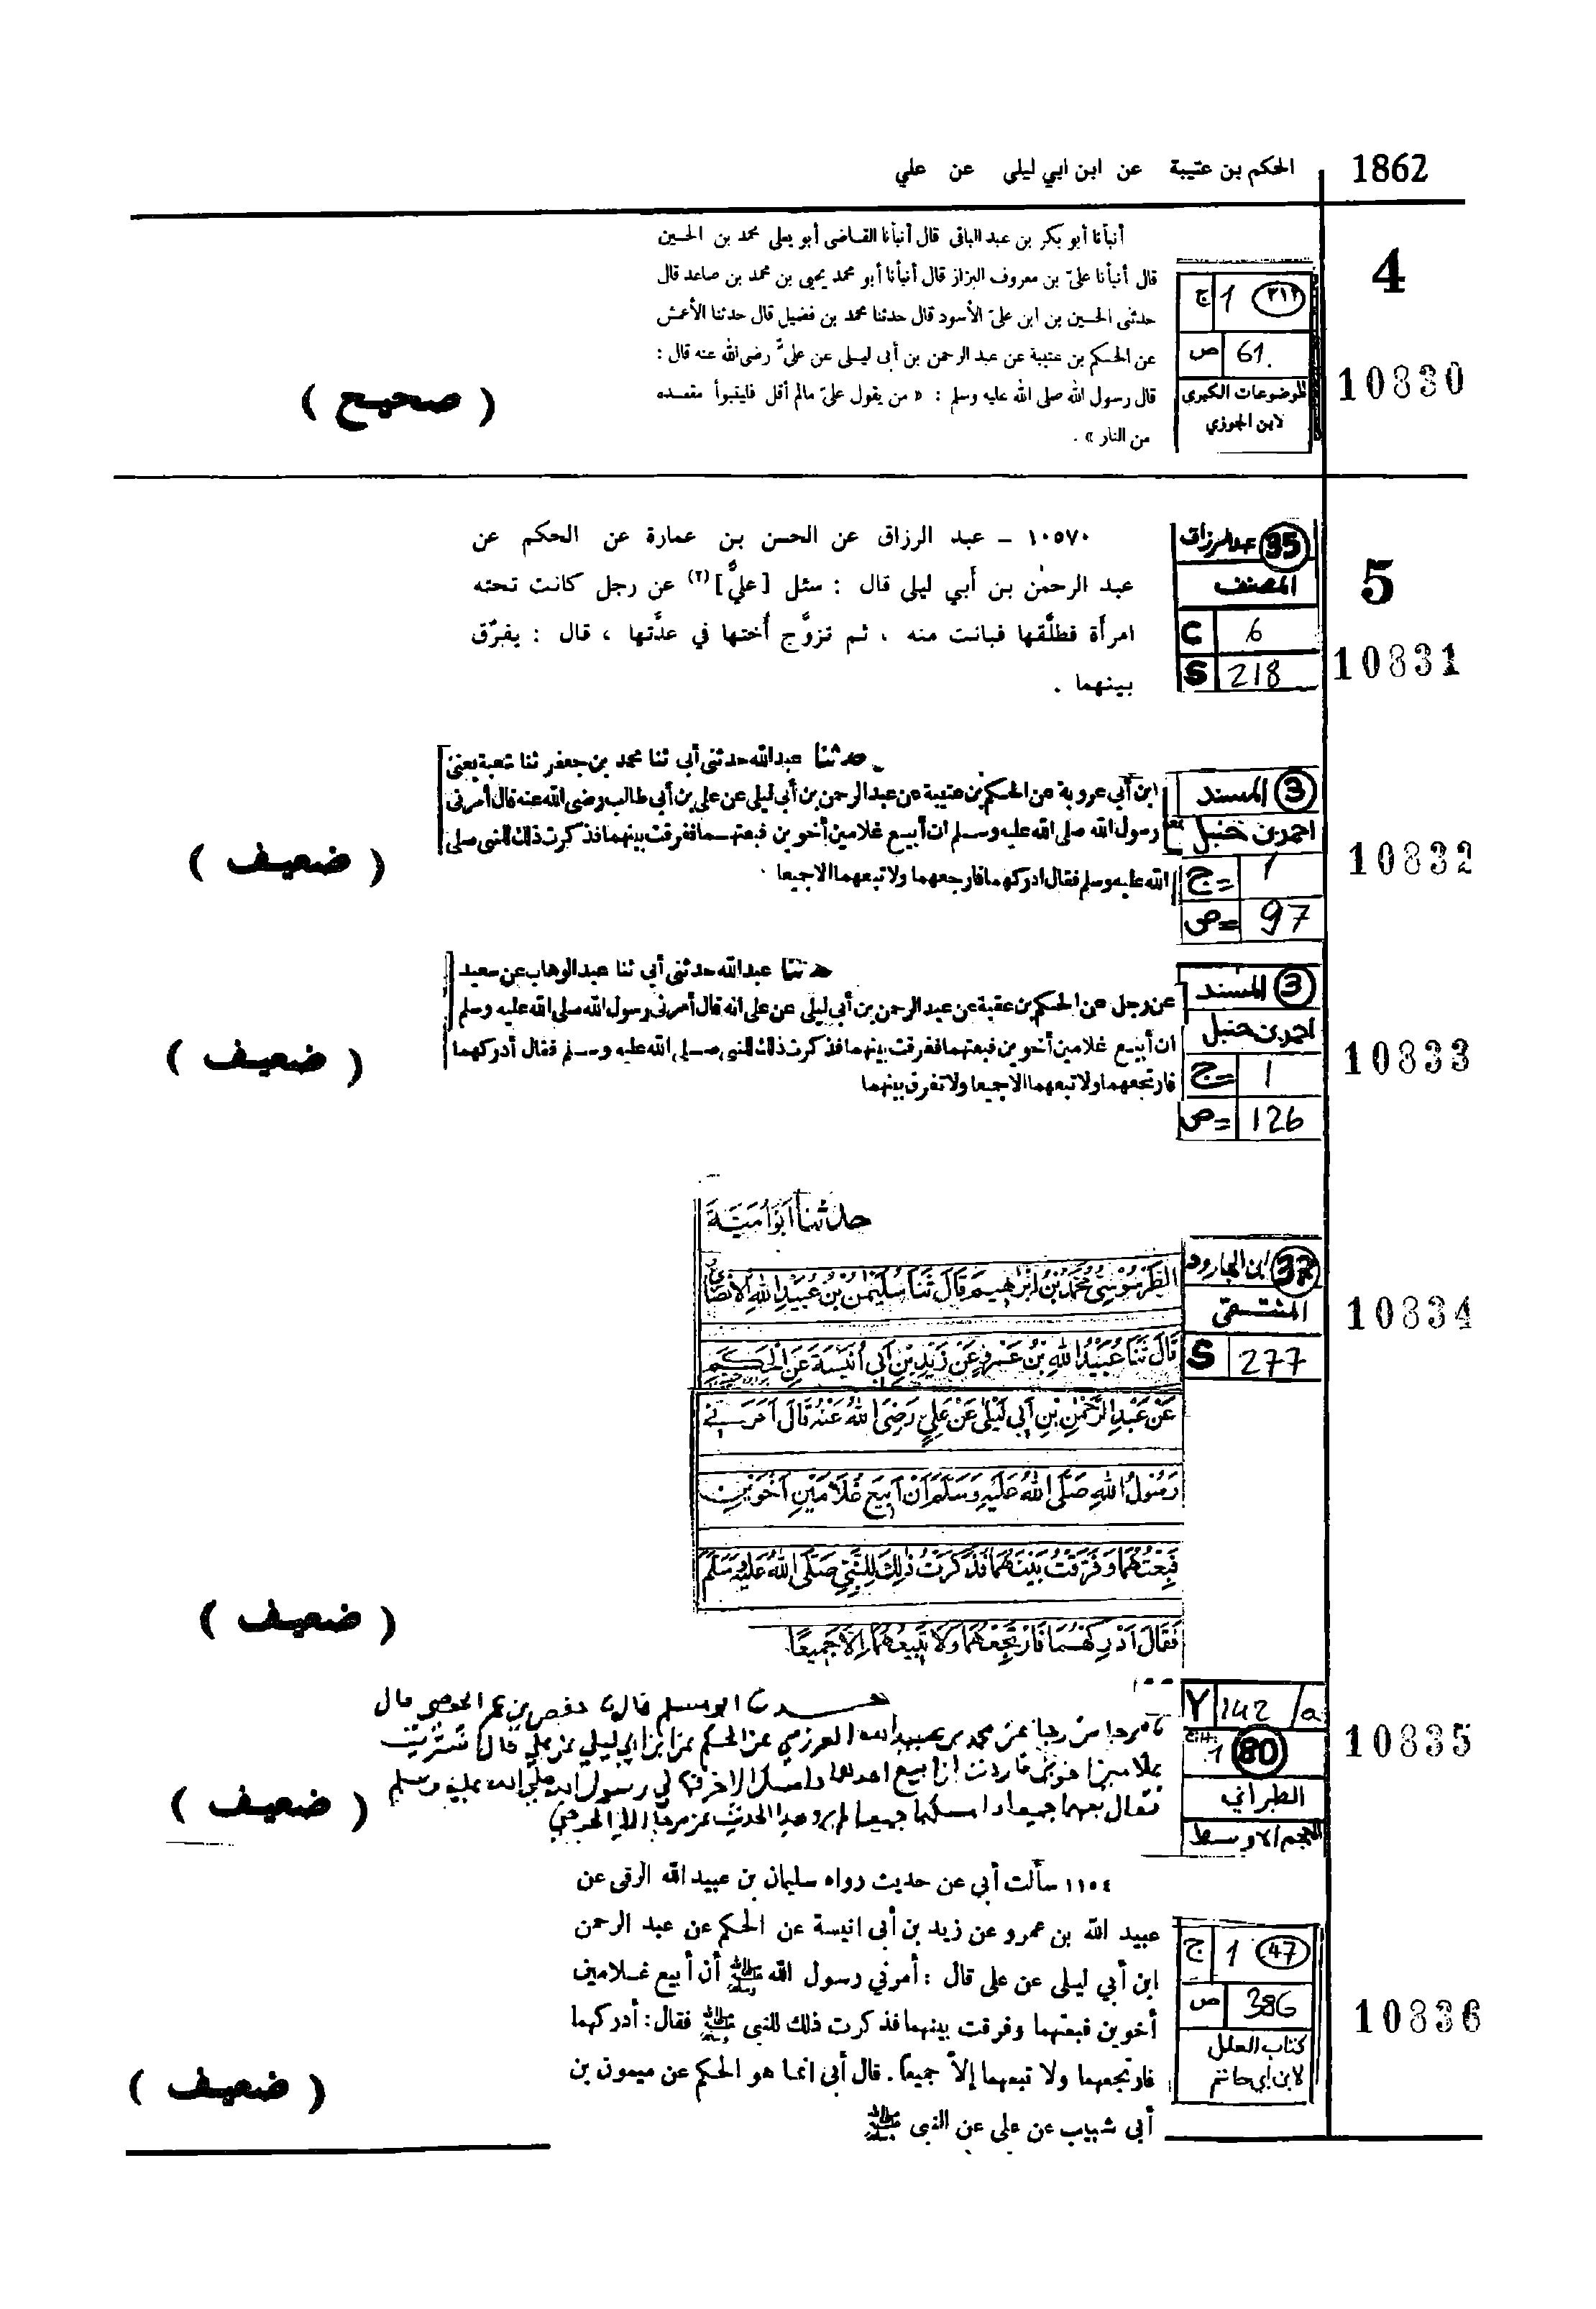 1862
الحكم بن عتيبة عن ابن ابي ليلى عن علي
4
10830
ج 1 ٢١٢
ص 61.
الموضوعات الكبرى
لابن الجوزي
أنبأنا أبو بكر بن عبد الباقى قال أنبأنا القاضى أبو يعلى محمد بن الحسين
قال أنبأنا علىّ بن معروف البزاز قال أنبأنا أبو محمد يحيى بن محمد بن صاعد قال
حدثنى الحسين بن ابن علىّ الأسود قال حدثنا محمد بن فضيل قال حدثنا الأعمش
عن الحكم بن عتيبة عن عبد الرحمن بن أبى ليلى عن علىّ رضى الله عنه قال :
قال رسول الله صلى الله عليه وسلم : « من يقول علىّ مالم أقل فليتبوأ مقعده
من النار » .
( صحيح )
5
10831
35 عبد الرزاق
المصنف
C 6
S 218
١٠٥٧٠ – عبد الرزاق عن الحسن بن عمارة عن الحكم عن
عبد الرحمٰن بن أبي ليلى قال : سئل [عليٌّ](٢) عن رجل كانت تحته
امرأة فطلَّقها فبانت منه ، ثم تزوَّج أُختها في عدَّتها ، قال : يفرّق
بينهما .
10832
3 المسند
احمد بن حنبل
ج= 1
ص= 97
حدثنا عبدالله حدثنى أبى ثنا محمد بن جعفر ثنا شعبة يعنى
ابن أبى عروبة عن الحكم بن عتيبة عن عبد الرحمن بن أبى ليلى عن على بن أبى طالب رضى الله عنه قال أمرنى
رسول الله صلى الله عليه وسلم ان أبيع غلامين أخوين فبعتهما ففرقت بينهما فذكرت ذلك للنبى صلى
الله عليه وسلم فقال ادركهما فارجعهما ولا تبعهما الا جميعا .
( ضعيف )
10833
3 المسند
احمد بن حنبل
ج= 1
ص= 126
حدثنا عبدالله حدثنى أبى ثنا عبد الوهاب عن سعيد
عن رجل عن الحكم بن عقبة عن عبد الرحمن بن أبى ليلى عن على انه قال أمرنى رسول الله صلى الله عليه وسلم
ان أبيع غلامين أخوين فبعتهما ففرقت بينهما فذكرت ذلك للنبى صلى الله عليه وسلم فقال أدركهما
فارتجعهما ولا تبعهما الا جميعا ولا تفرق بينهما
( ضعيف )
10834
37 ابن الجارود
المنتقى
S 277
حدثنا أبو أمية
الطرسوسي محمد بن إبراهيم قال ثنا سليمن بن عبيد الله الأنصاري
قال ثنا عبيد الله بن عمرو عن زيد بن أبي أنيسة عن الحكم
عن عبد الرحمن بن أبي ليلى عن علي رضي الله عنه قال أمرني
رسول الله صلى الله عليه وسلم أن أبيع غلامين أخوين
فبعتهما وفرقت بينهما فذكرت ذلك للنبي صلى الله عليه وسلم
فقال أدركهما فارتجعهما ولا تبيعهما إلا جميعا
( ضعيف )
10835
Y 142/a
Cilt. 1 80
الطبراني
المعجم الاوسط
ابو مسلم قال نا حفص بن عمر الحوضي قال
نا مرجا بن رجا عن محمد بن عبيد الله العرزمي عن الحكم عن ابن ابي ليلى عن علي قال اشتريت
غلامين اخوين فاردت ان ابيع احدهما وامسك الاخر فقال لي رسول الله صلى الله عليه وسلم
فقال بعهما جميعا او امسكهما جميعا لم يرو هذا الحديث عن مرجا الا الحوضي
( ضعيف )
10836
ج 1 47
ص 386
كتاب العلل
لابن ابي حاتم
١١٥٤ سألت أبي عن حديث رواه سليمان بن عبيد الله الرقى عن
عبيد الله بن عمرو عن زيد بن أبى انيسة عن الحكم عن عبد الرحمن
ابن أبي ليلى عن على قال : أمرني رسول الله ﷺ أن أبيع غلامين
أخوين فبعتهما وفرقت بينهما فذكرت ذلك للنبى ﷺ فقال: أدركهما
فارتجعهما ولا تبعهما إلاّ جميعاً. قال أبى انما هو الحكم عن ميمون بن
أبى شبيب عن على عن النبى ﷺ
( ضعيف )